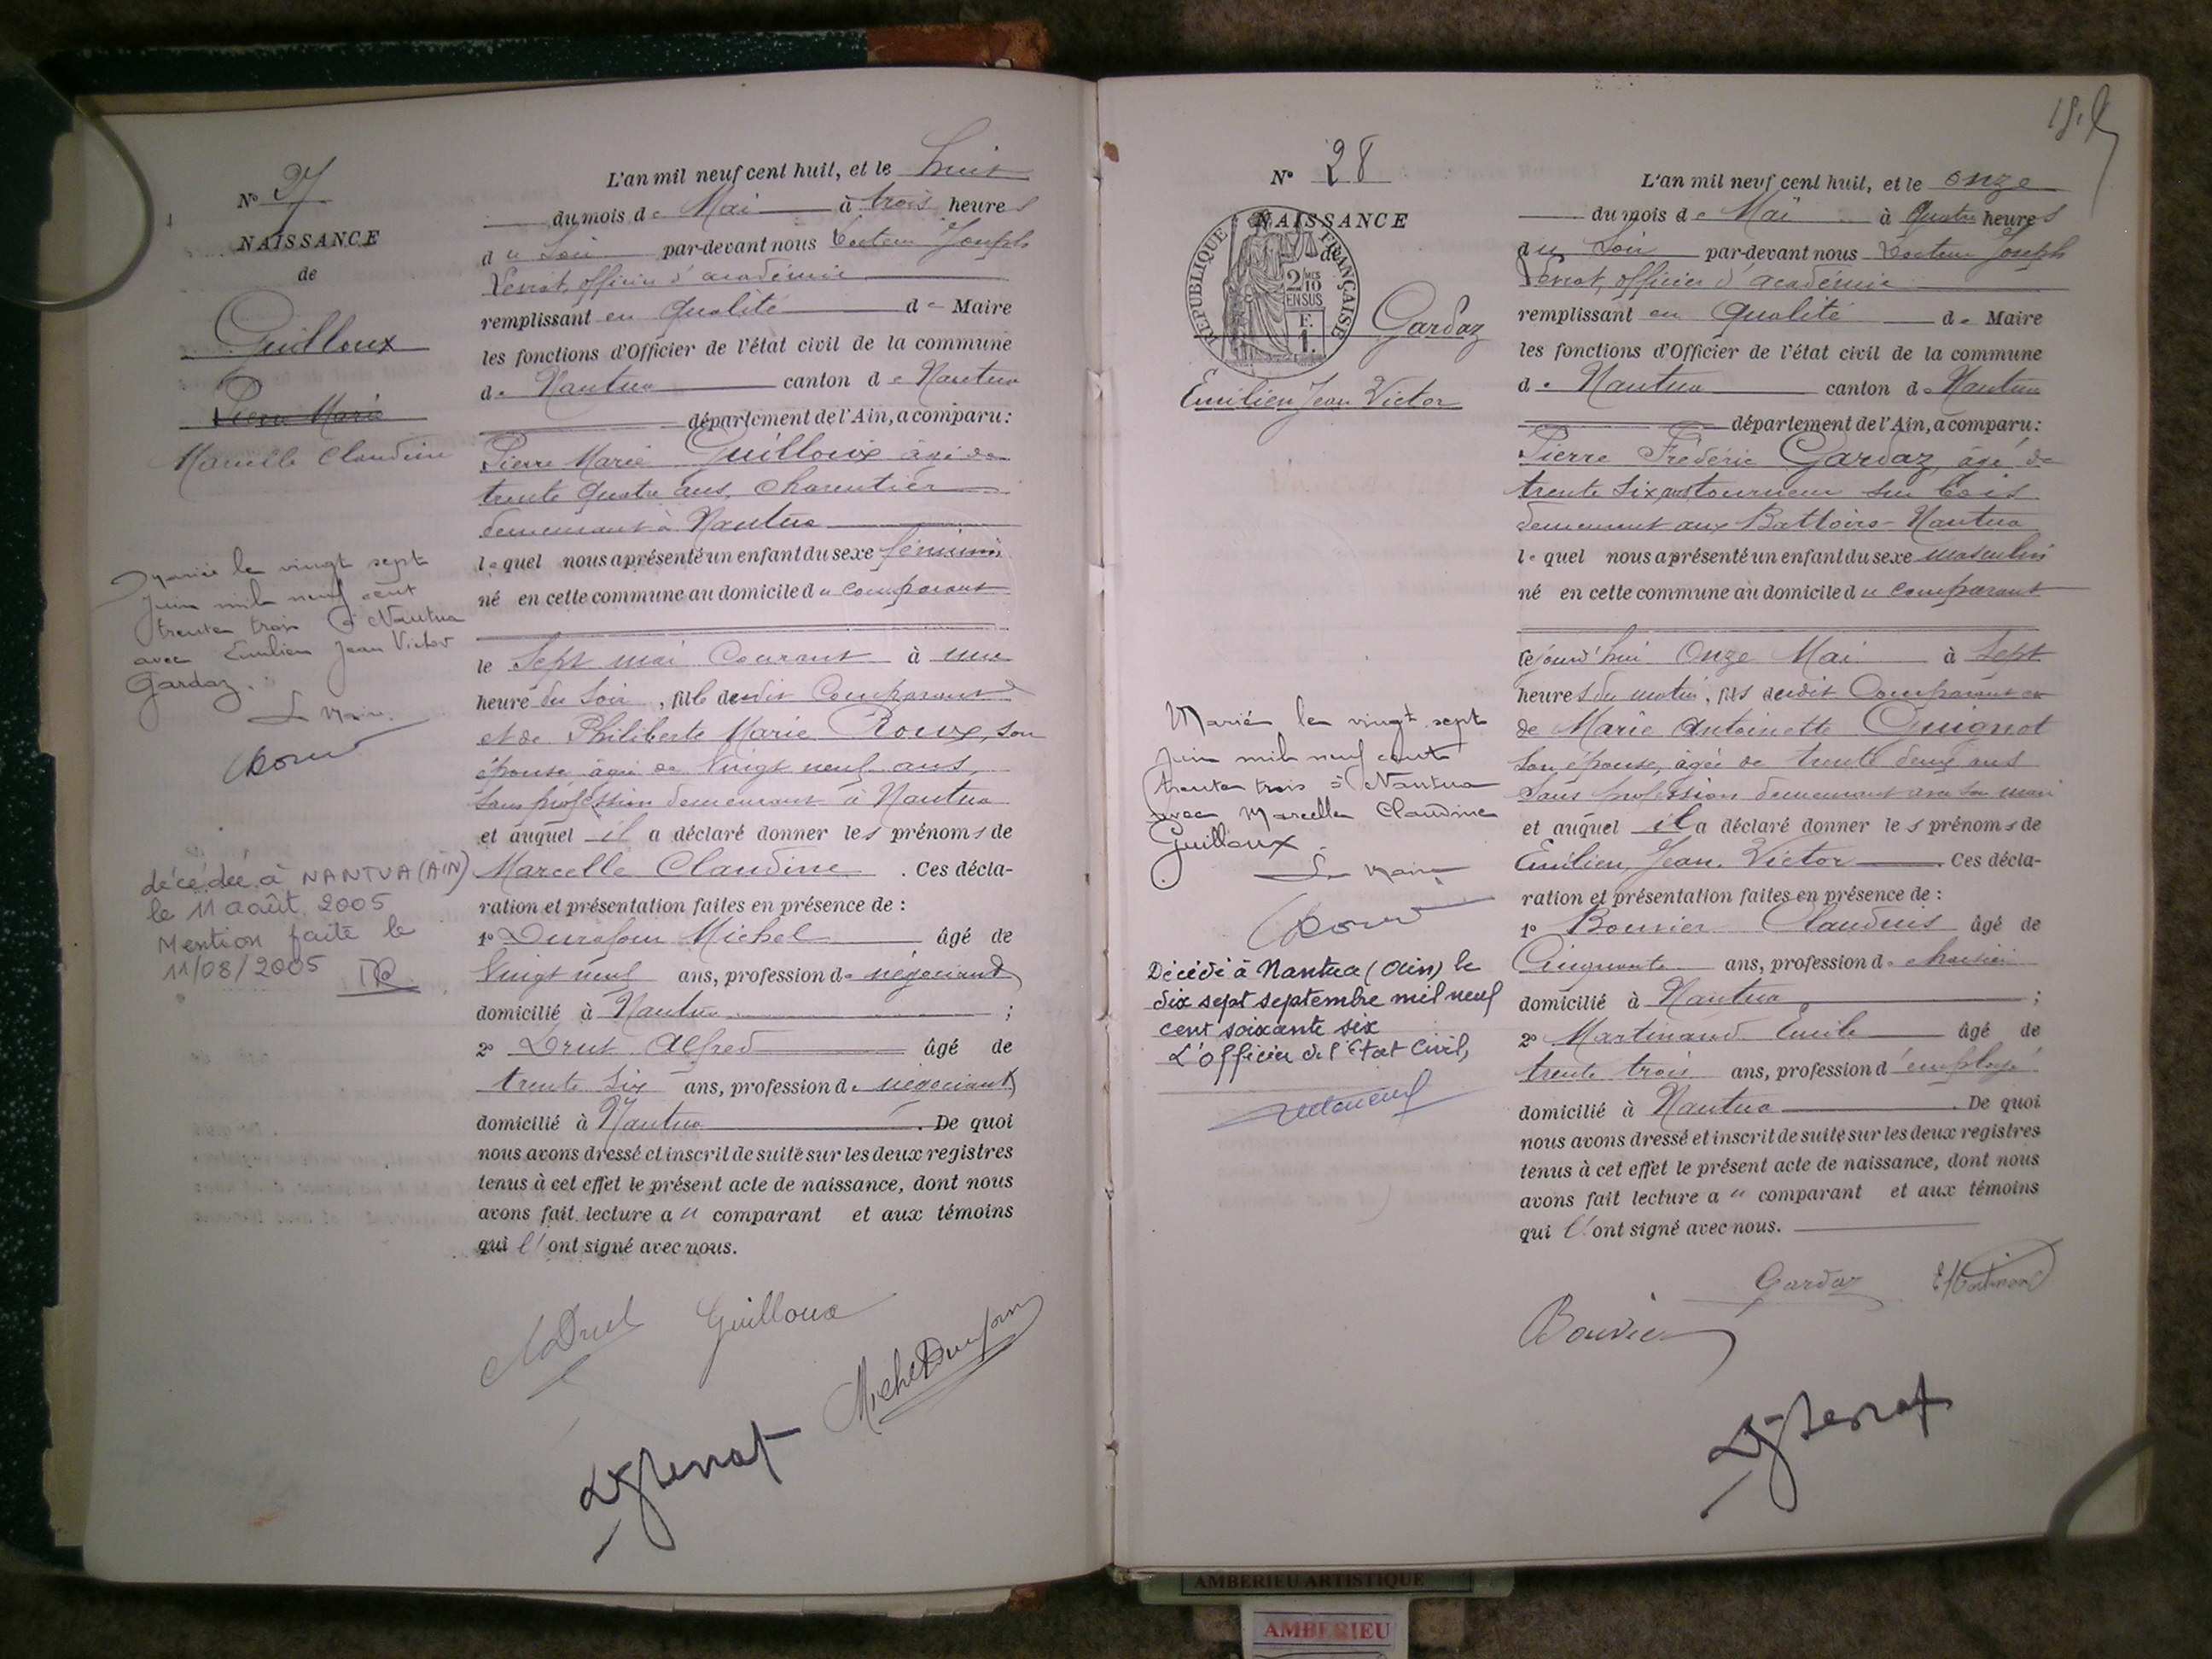 N° 27
NAISSANCE
de
Guilloux
Pierre Marie
Marcelle Claudine
Mariée le vingt sept
Juin mil neuf cent
trente trois à Nantua
avec Emilien Jean Victor
Gardaz.
Le Maire
décédée à NANTUA (AIN)
le 11 août 2005
Mention faite le
11/08/2005
L'an mil neuf cent huit, et le huit
du mois de Mai à trois heures
du Soir par-devant nous Docteur Joseph
officier d'académie
remplissant en qualité de Maire
les fonctions d'Officier de l'état civil de la commune
de Nantua canton de Nantua
département de l'Ain, a comparu:
Pierre Marie Guilloux âgé de
trente quatre ans, Charcutier
demeurant à Nantua
lequel nous a présenté un enfant du sexe féminin
né en cette commune au domicile du comparant
le Sept mai Courant à une
heure du Soir, fille dudit Comparant
et de Philiberte Marie Roux, son
épouse âgée de Vingt neuf ans
Sans profession demeurant à Nantua
et auquel il a déclaré donner les prénoms de
Marcelle Claudine. Ces décla-
ration et présentation faites en présence de :
1° Durafour Michel âgé de
Vingt neuf ans, profession de négociant
domicilié à Nantua ;
2° Drut Alfred âgé de
trente Six ans, profession de négociant
domicilié à Nantua. De quoi
nous avons dressé et inscrit de suite sur les deux registres
tenus à cet effet le présent acte de naissance, dont nous
avons fait lecture au comparant et aux témoins
qui l'ont signé avec nous.
A Drut Guilloux
Michel Durafour
N° 28
NAISSANCE
de
RÉPUBLIQUE FRANÇAISE
2/10
EN SUS
F.
1.
Gardaz
Emilien Jean Victor
Marié le vingt sept
Juin mil neuf cent
trente trois à Nantua
avec Marcelle Claudine
Guilloux.
Le Maire
Décédé à Nantua (Ain) le
dix sept septembre mil neuf
cent soixante six
L'officier de l'Etat Civil,
L'an mil neuf cent huit, et le onze
du mois de Mai à Quatre heures
du Soir par-devant nous Docteur Joseph
officier d'académie
remplissant en qualité de Maire
les fonctions d'Officier de l'état civil de la commune
de Nantua canton de Nantua
département de l'Ain, a comparu:
Pierre Frédéric Gardaz, âgé de
trente Six ans tourneur sur bois
demeurant aux Battoirs-Nantua
lequel nous a présenté un enfant du sexe masculin
né en cette commune au domicile du comparant
cejourd'hui Onze Mai à Sept
heures du matin, fils dudit Comparant et
de Marie Antoinette Guignot
Son épouse, âgée de trente deux ans
Sans profession demeurant avec son mari
et auquel il a déclaré donner les prénoms de
Emilien, Jean, Victor. Ces décla-
ration et présentation faites en présence de :
1° Bouvier Claudius âgé de
Cinquante ans, profession de
domicilié à Nantua ;
2° Martinand Emile âgé de
trente trois ans, profession d'employé
domicilié à Nantua. De quoi
nous avons dressé et inscrit de suite sur les deux registres
tenus à cet effet le présent acte de naissance, dont nous
avons fait lecture au comparant et aux témoins
qui l'ont signé avec nous.
Gardaz E Martinand
Bouvier
AMBERIEU ARTISTIQUE
AMBERIEU